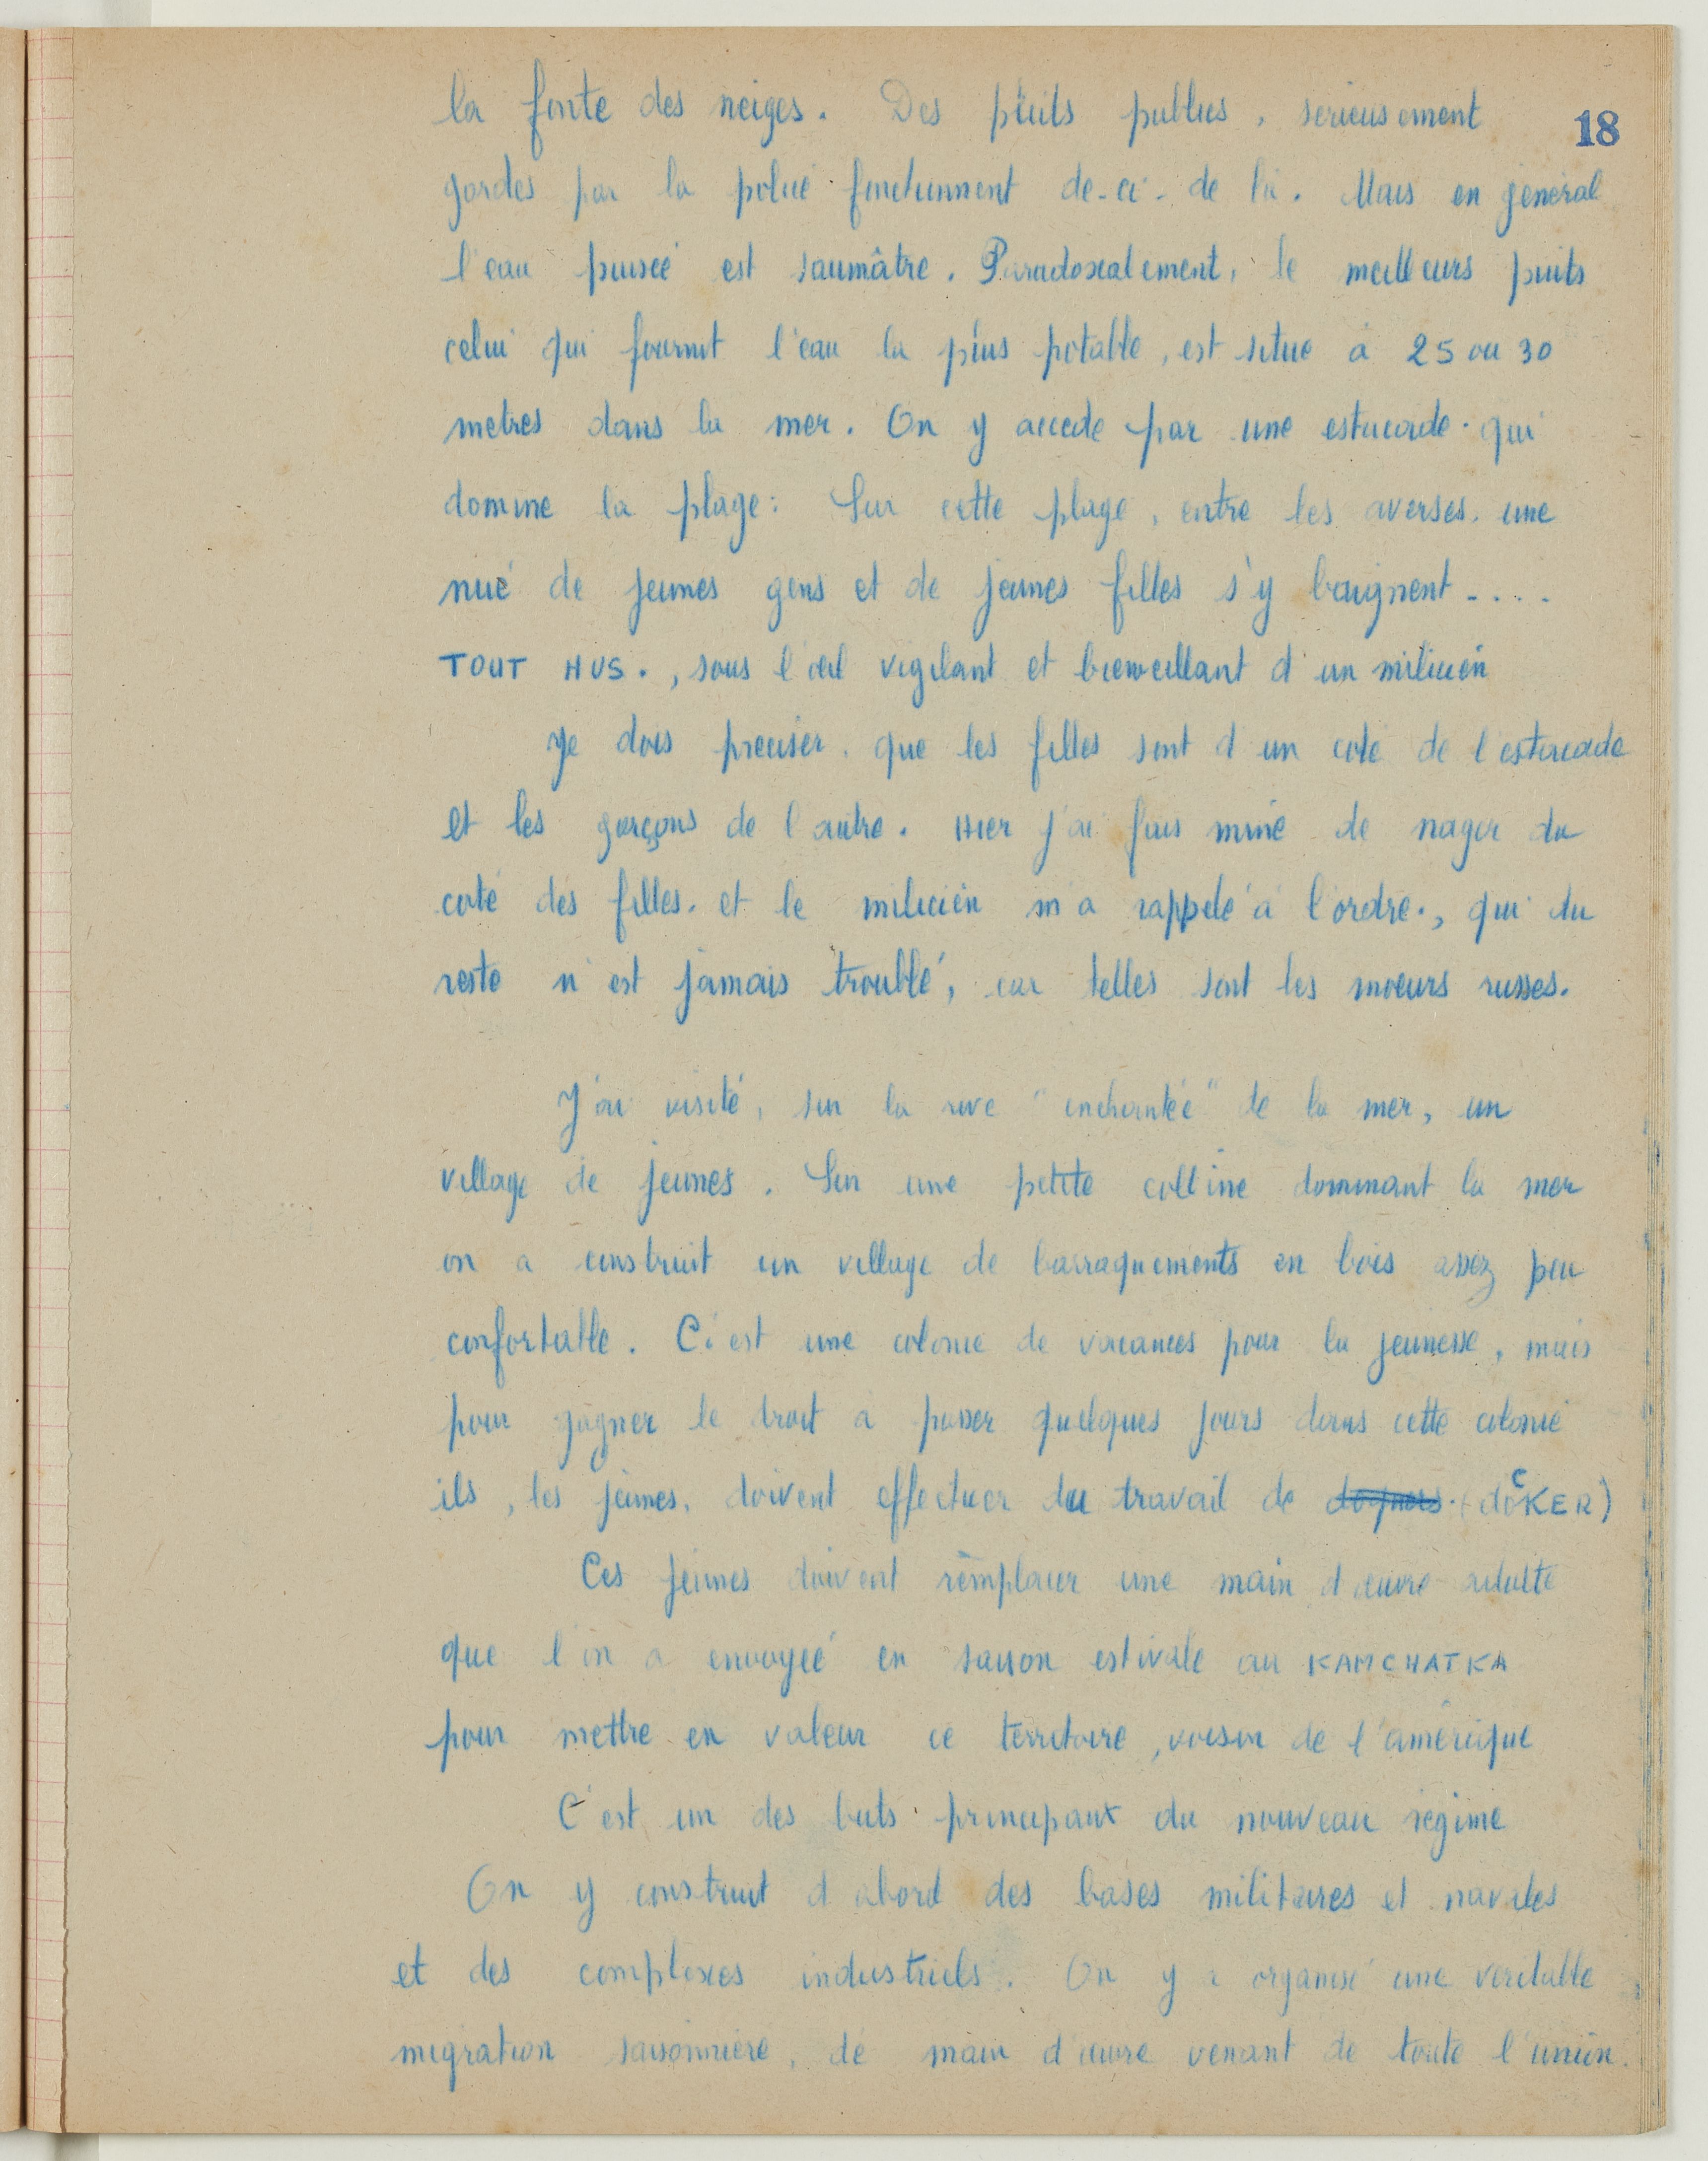 la fonte des neiges. Des puits publics, serieusement
18
gardes par la police fonctionnent de-ci-de là. Mais en général
l'eau puiseé est saumâtre. Paradoxalement, le meilleurs puits
celui qui fournit l'eau la plus potable, est situe à 25 ou 30
metres dans la mer. On y accede par une estacade qui
domine la plage: Sur cette plage, entre les averses, une
nué de jeunes gens et de jeunes filles s'y baignent....
TOUT NUS., sous l'œil vigilant et bienveillant d'un milicien
Je dois preciser, que les filles sont d'un coté de l'estacade
et les garçons de l'autre. Hier j'ai fais mine de nager du
coté des filles. et le milicien m'a rappelé à l'ordre., qui du
reste n'est jamais troublé, car telles sont les moeurs russes.
J'ai visité, sur la rive "enchantée" de la mer, un
village de jeunes. Sur une petite colline dominant la mer
on a construit un village de barraquements en bois assez peu
confortable. C'est une colonie de vacances pour la jeunesse, mais
pour gagner le droit a passer quelques jours dans cette colonie
ils, les jeunes, doivent effectuer du travail de doquers. (doCKER)
Ces jeunes doivent remplacer une main d'œuvre adulte
que l'on a envoyeé en saison estivale au KAMCHATKA
pour mettre en valeur ce territoire, voisin de l'amerique
C'est un des buts principaux du nouveau régime
On y construit d'abord des bases militaires et navales
et des complexes industriels. On y a organisé une veritable
migration saisonniere, de main d'œuvre venant de toute l'union.